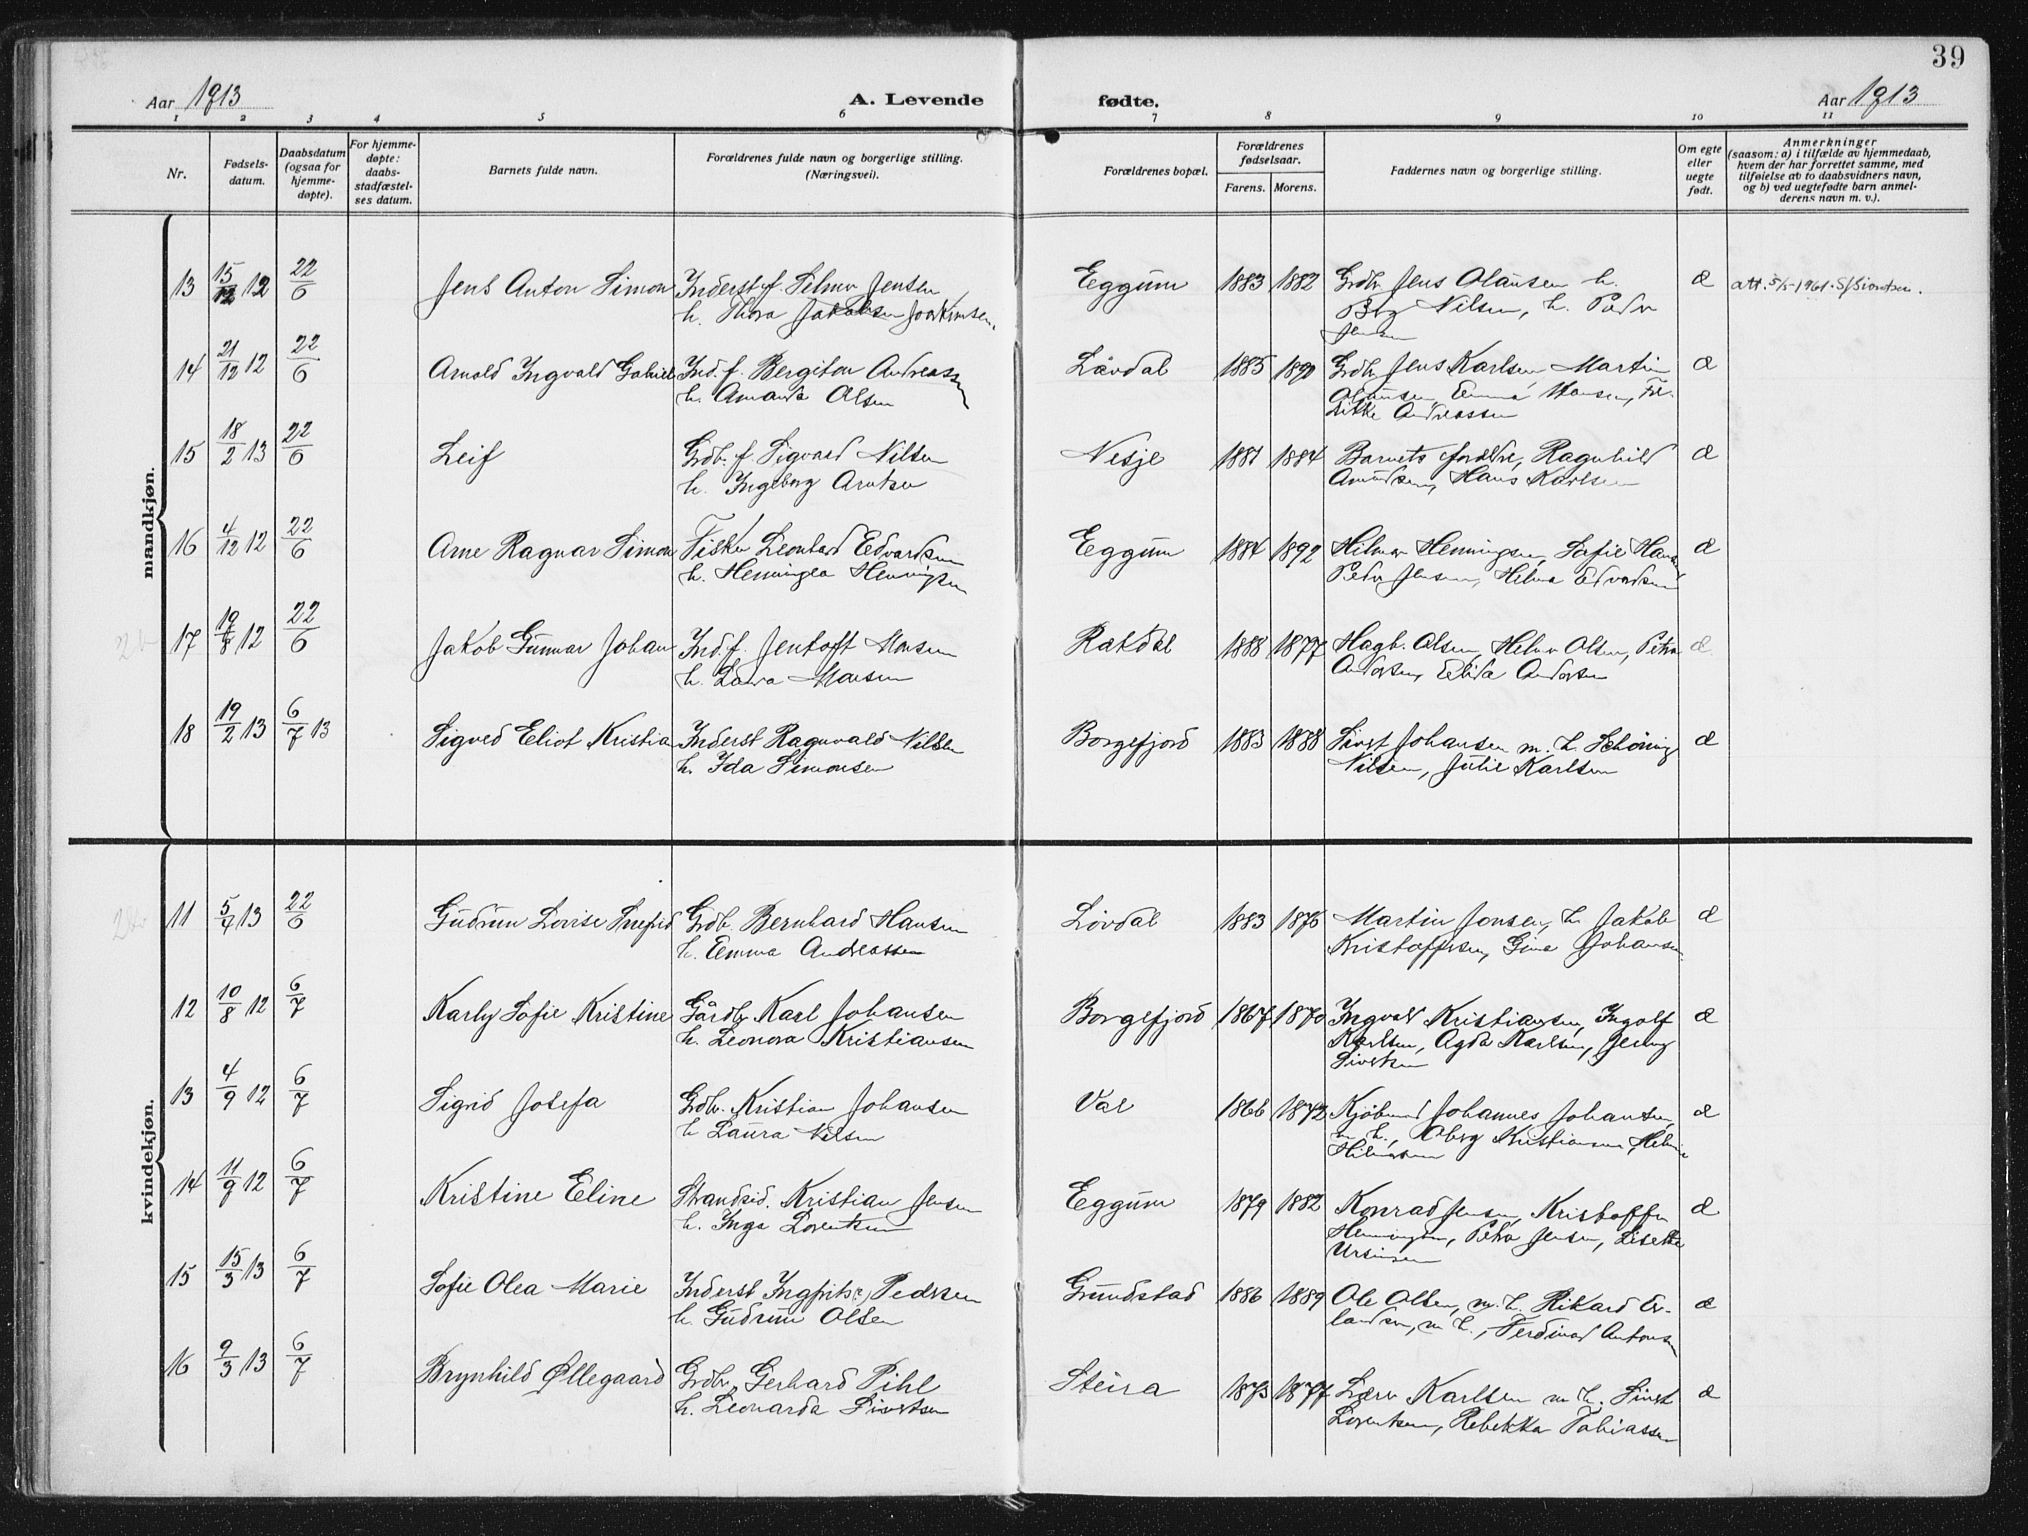 39
Aar 1913
A. Levende
fødte.
Aar 1913
1 2 3 4 5 6 7 8 9 10 11
Nr.
Fødsels-
datum.
Daabsdatum
(ogsaa for
hjemme-
døpte).
For hjemme-
døpte:
daabs-
stadfæstel-
ses datum.
Barnets fulde navn.
Forældrenes fulde navn og borgerlige stilling.
(Næringsvei).
Forældrenes bopæl.
Forældrenes
fødselsaar.
Farens. Morens.
Faddernes navn og borgerlige stilling.
Om egte
eller
uegte
født.
Anmerkninger
(saasom: a) i tilfælde av hjemmedaab,
hvem der har forrettet samme, med
tilføielse av to daabsvidners navn,
og b) ved uegtefødte barn anmel-
derens navn m. v.).
mandkjøn.
13 15/12 12 22/6 Jens Anton Simon Inderst f. Selmer Jensen Eggum 1883 1882 Grdbr Jens Olausen h. æ att. 5/5-1961.
h. Thora Jakobsen Joakimsen. Nilsen, h. Peder
Jensen
14 21/12 12 22/6 Arnold Ingvald Gabriel Ind. f. Bergiton Andreassen Låvdal 1885 1890 Grdb. Jens Karlsen Martin æ
h. Amanda Olsen Olausen, Emma Hansen, Fre-
rikke Andreassen
15 18/2 13 22/6 Leif Grdb. f. Sigvard Nilsen Nesje 1881 1884 Barnets forældre, Ragnhild æ
h. Ingeborg Arntsen Amundsen, Hans Karlsen
16 4/12 12 22/6 Arne Ragnar Simon Fisker Leonhard Edvardsen Eggum 1884 1892 Hilmar Henningsen, Sofie Hansen æ
h. Henningea Henningsen Peder Jensen, Helma Edvardsen
17 19/8 12 22/6 Jakob Gunnar Johan Ind. f. Jentoft Monsen Rakdal 1888 1877 Hagb. Olsen, Helmer Olsen, Petra æ
h. Laura Monsen Andersen, Elida Andersen
18 19/2 13 6/7 13 Sigved Eliot Kristian Inderst Ragnvald Nilsen Borgefjord 1883 1888 Sivert Johansen m. h. Schöning æ
h. Ida Simonsen Nilsen, Julie Karlsen
kvindekjøn.
11 5/4 13 22/6 Gudrun Lovise Snefrid Grdb. Bernhard Hansen Lövdal 1883 1876 Martin Jonsen, h. Jakob æ
h. Emma Andreassen Kristoffersen, Gina Johansen
12 10/8 12 6/7 Karly Sofie Kristine Gårdb. Karl Johansen Borgefjord 1867 1870 Ingvald Kristiansen, Ingolf æ
h. Leonora Kristiansen Karlsen, Agda Karlsen, Jenny
Sivertsen
13 4/9 12 6/7 Sigrid Josefa Grdbr. Kristian Johansen Val 1866 1872 Kjöbmand Johannes Johansen, æ
h Laura Nilsen m h., Oberg Kristiansen, Helmine
Hilmarsen
14 11/9 12 6/7 Kristine Eline Strandsid. Kristian Jensen Eggum 1879 1882 Konrad Jensen, Kristoffer æ
h. Inga Lorentsen Henningsen, Petra Jensen, Lisette
Ursinsen
15 15/3 13 6/7 Sofie Olea Marie Inderst Ingfrits Pedersen Grundstad 1886 1889 Ole Olsen, m. h. Rikard Er- æ
h. Gudrun Olsen landsen, m h., Ferdinad Antonsen
16 9/3 13 6/7 Brynhild Øllegaard Grdbr. Gerhard Pihl Steira 1873 1877 Lærer Karlsen m h. Sivert æ
h. Leonarda Sivertsen Lorentsen, Rebekka Tobiassen